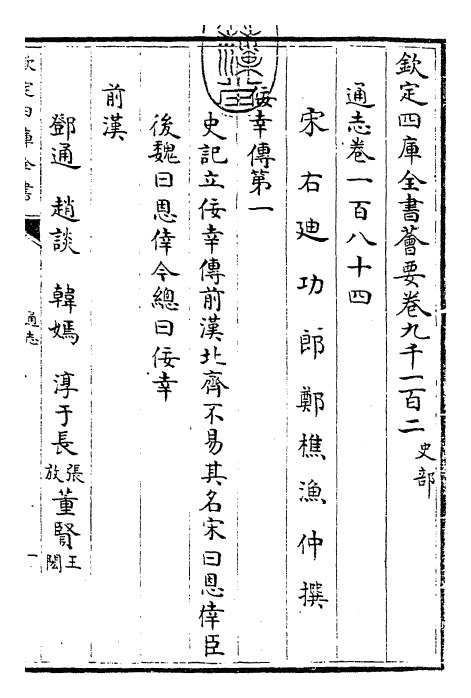 欽定四庫全書薈要卷九千一百二 史部
通志卷一百八十四
宋右迪功郎鄭樵漁仲撰
佞幸傳第一
史記立佞幸傳前漢北齊不易其名宋曰恩倖臣
後魏曰恩倖今總曰佞幸
前漢
鄧通 趙談 韓嫣 淳于長張放 董賢王閎
欽定四庫全書
通志
一